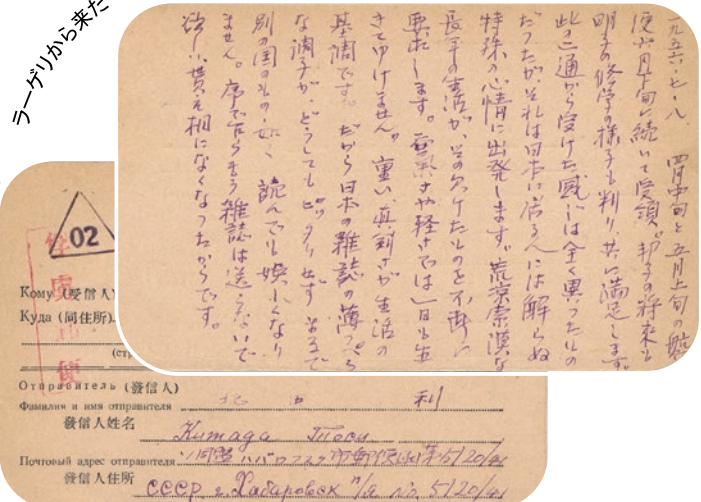 ラーゲリから来た
一九五六・七・八、 四月中旬と五月上旬の
便 六月上旬に続いて受領。邦子の将来も
明子の修学の様子も判り、共に満足します。
此の二通から受けた感じは全く異ったもの
だったが、それは日本に居る人には解らぬ
特殊の心情に出発します。荒涼索漠な
長年の生活が、その欠けたものを不断に
要求します。 や軽さでは一日も生
きてゆけません。重い、真剣さが生活の
基調です。だから日本の雑誌の薄っぺら
な調子が、どうしてもピッタリせず まるで
別の国のもの、如く 読んでも娯しくなり
ません。序で乍らもう雑誌は送らないで
欲しい。貰う相になくなったからです。
02
Кому (受信人)
Куда (同住所)
(стр
Отправитель (發信人)
Фамилия и имя отправителя 利
發信人姓名
Китада Тоси
Почтовый адрес отправителя ソ同盟ハバロフスク市郵便函第5120/
發信人住所
СССР г. Хабаровск п/я No 5120/